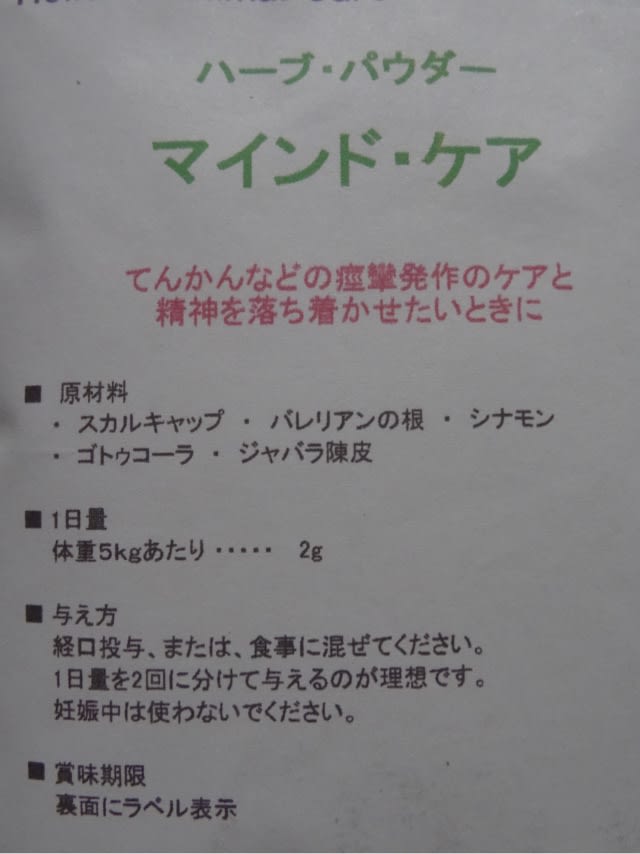 ハーブ・パウダー
マインド・ケア
てんかんなどの痙攣発作のケアと
精神を落ち着かせたいときに
■ 原材料
・ スカルキャップ ・ バレリアンの根 ・ シナモン
・ ゴトゥコーラ ・ ジャバラ陳皮
■ 1日量
体重5kgあたり ‥‥‥ 2g
■ 与え方
経口投与、または、食事に混ぜてください。
1日量を2回に分けて与えるのが理想です。
妊娠中は使わないでください。
■ 賞味期限
裏面にラベル表示